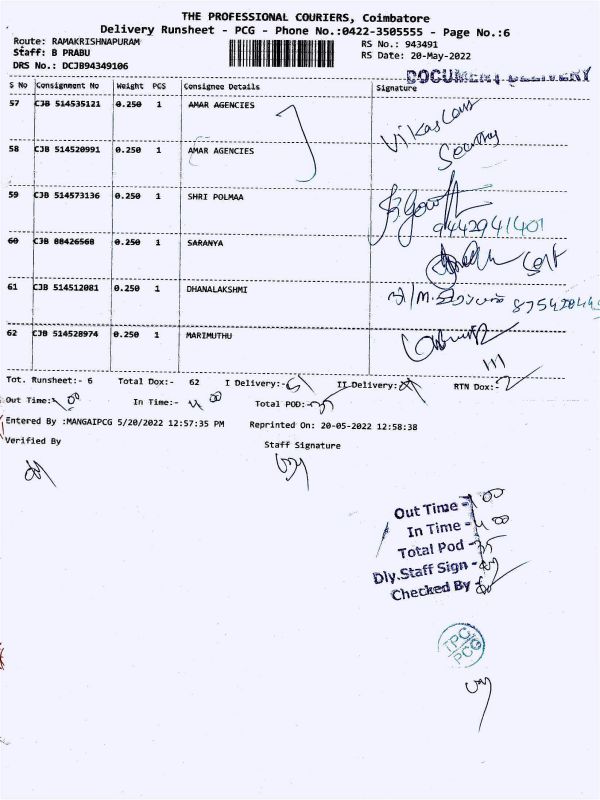 THE PROFESSIONAL COURIERS, Coimbatore
Delivery Runsheet - PCG - Phone No.:0422-3505555 - Page No.:6
Route: RAMAKRISHNAPURAM RS No.: 943491
Staff: B PRABU RS Date: 20-May-2022
DRS No.: DCJB94349106
DOCUMENT DELIVERY
S No Consignment No Weight PCS Consignee Details Signature
57 CJB 514535121 0.250 1 AMAR AGENCIES
58 CJB 514520991 0.250 1 AMAR AGENCIES
Security
59 CJB 514573136 0.250 1 SHRI POLMAA
9442941401
60 CJB 08426568 0.250 1 SARANYA
61 CJB 514512081 0.250 1 DHANALAKSHMI
62 CJB 514528974 0.250 1 MARIMUTHU
Tot. Runsheet:- 6 Total Dox:- 62 I Delivery:- II Delivery:- RTN Dox:-
Out Time:- 1 00 In Time:- 4 00 Total POD:- 35
Entered By :MANGAIPCG 5/20/2022 12:57:35 PM Reprinted On: 20-05-2022 12:58:38
Verified By Staff Signature
Out Time - 1 00
In Time - 4 00
Total Pod - 35
Dly.Staff Sign -
Checked By -
TPC
PCG